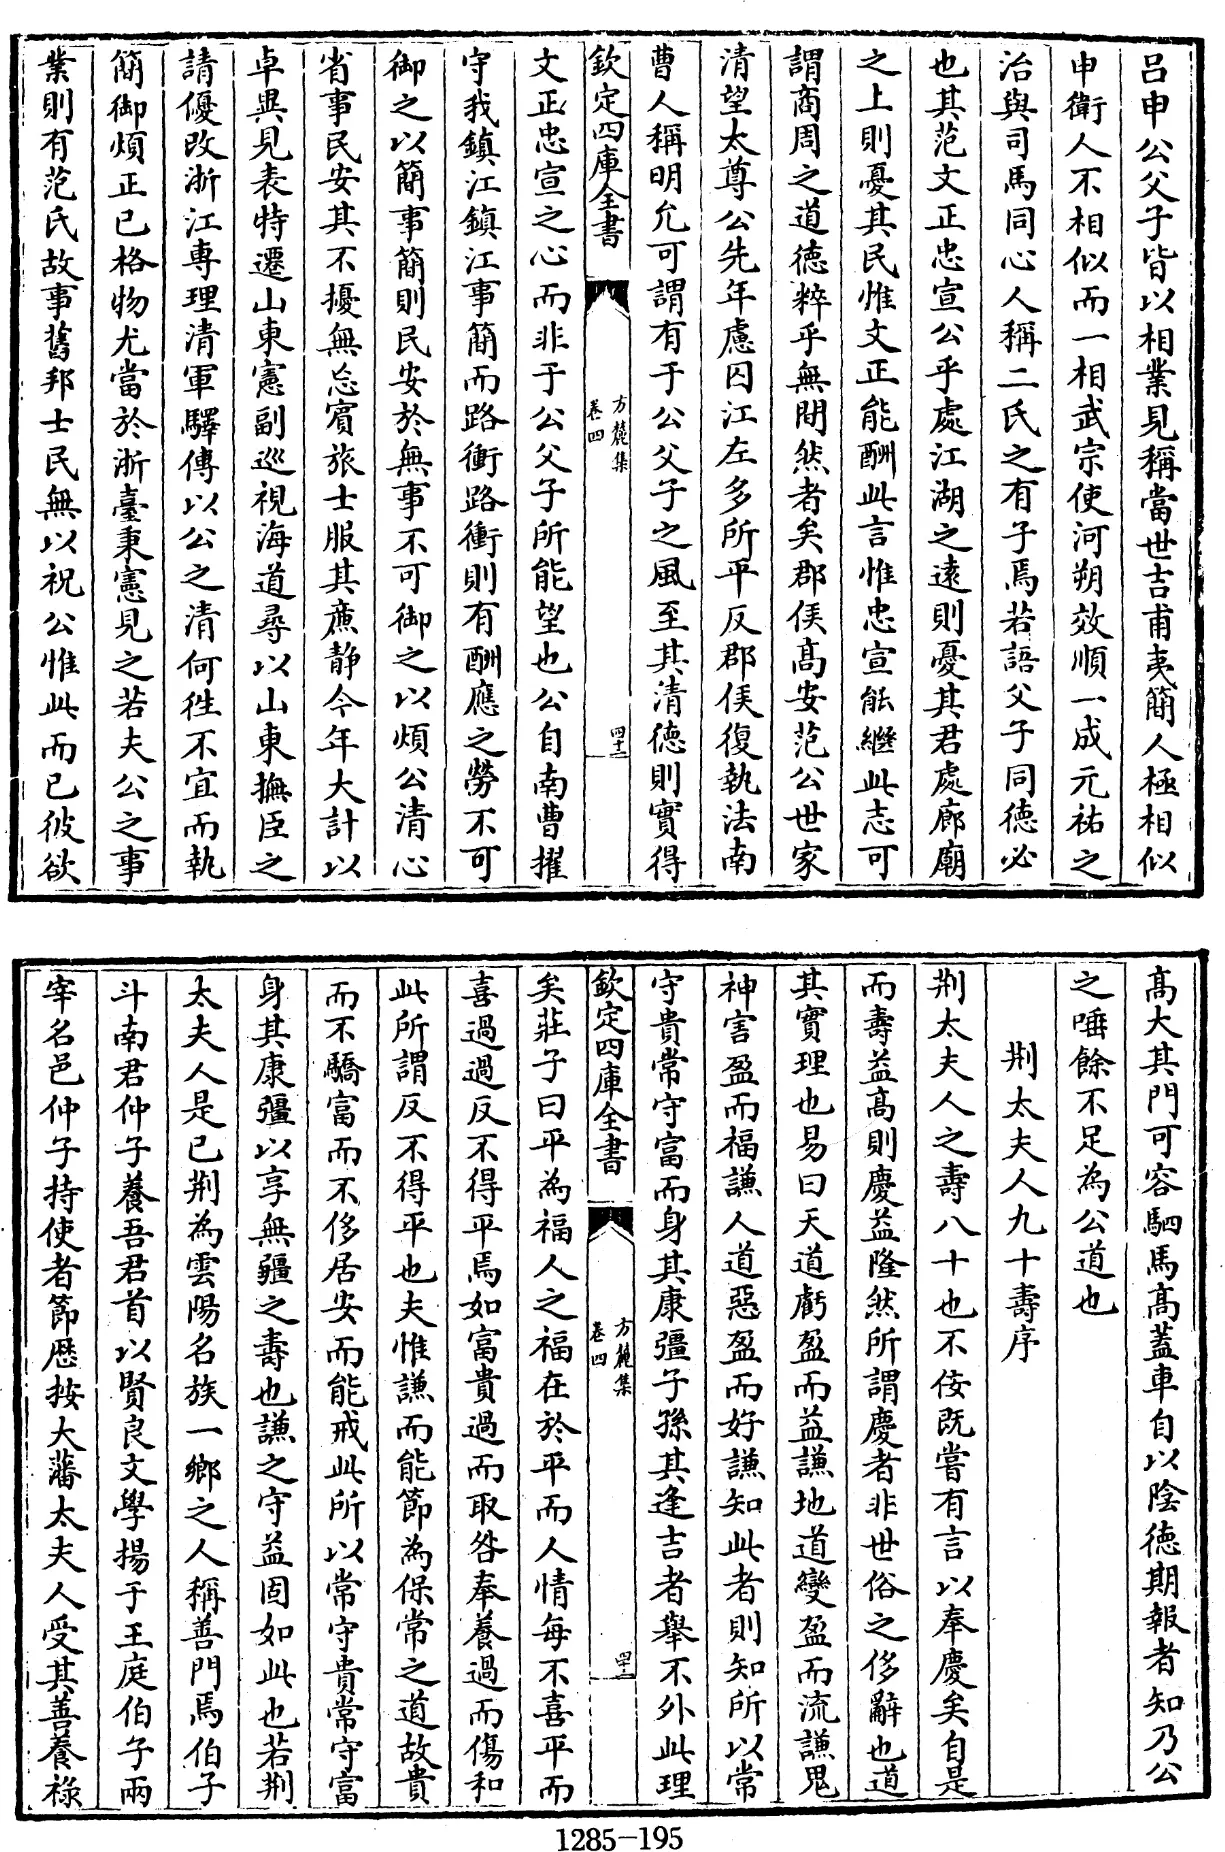 呂申公父子皆以相業見稱當世吉甫夷簡人極相似
申衛人不相似而一相武宗使河朔效順一成元祐之
治與司馬同心人稱二氏之有子焉若語父子同德必
也其范文正忠宣公乎處江湖之遠則憂其君處廊廟
之上則憂其民惟文正能酬此言惟忠宣能繼此志可
謂商周之道德粹乎無間然者矣郡侯髙安范公世家
清望太尊公先年慮囚江左多所平反郡侯復執法南
曹人稱明允可謂有于公父子之風至其清德則實得
欽定四庫全書
方麓集
卷四
四十二
文正忠宣之心而非于公父子所能望也公自南曹擢
守我鎮江鎮江事簡而路衝路衝則有酬應之勞不可
御之以簡事簡則民安於無事不可御之以煩公清心
省事民安其不擾無忘賓旅士服其亷静今年大計以
卓異見表特遷山東憲副巡視海道尋以山東撫臣之
請優改浙江専理清軍驛傳以公之清何徃不宜而執
簡御煩正已格物尤當於浙臺秉憲見之若夫公之事
業則有范氏故事舊邦士民無以祝公惟此而已彼欲
髙大其門可容駟馬髙蓋車自以陰德期報者知乃公
之唾餘不足為公道也
荆太夫人九十壽序
荆太夫人之壽八十也不佞既嘗有言以奉慶矣自是
而壽益髙則慶益隆然所謂慶者非世俗之侈辭也道
其實理也易曰天道虧盈而益謙地道變盈而流謙鬼
神害盈而福謙人道惡盈而好謙知此者則知所以常
守貴常守富而身其康彊子孫其逢吉者舉不外此理
欽定四庫全書
方麓集
卷四
矣莊子曰平為福人之福在於平而人情每不喜平而
喜過過反不得平焉如富貴過而取咎奉養過而傷和
此所謂反不得平也夫惟謙而能節為保常之道故貴
而不驕富而不侈居安而能戒此所以常守貴常守富
身其康彊以享無疆之壽也謙之守益固如此也若荆
太夫人是已荆為雲陽名族一鄉之人稱善門焉伯子
斗南君仲子養吾君首以賢良文學揚于王庭伯子兩
宰名邑仲子持使者節歴按大藩太夫人受其善養祿
1285-195